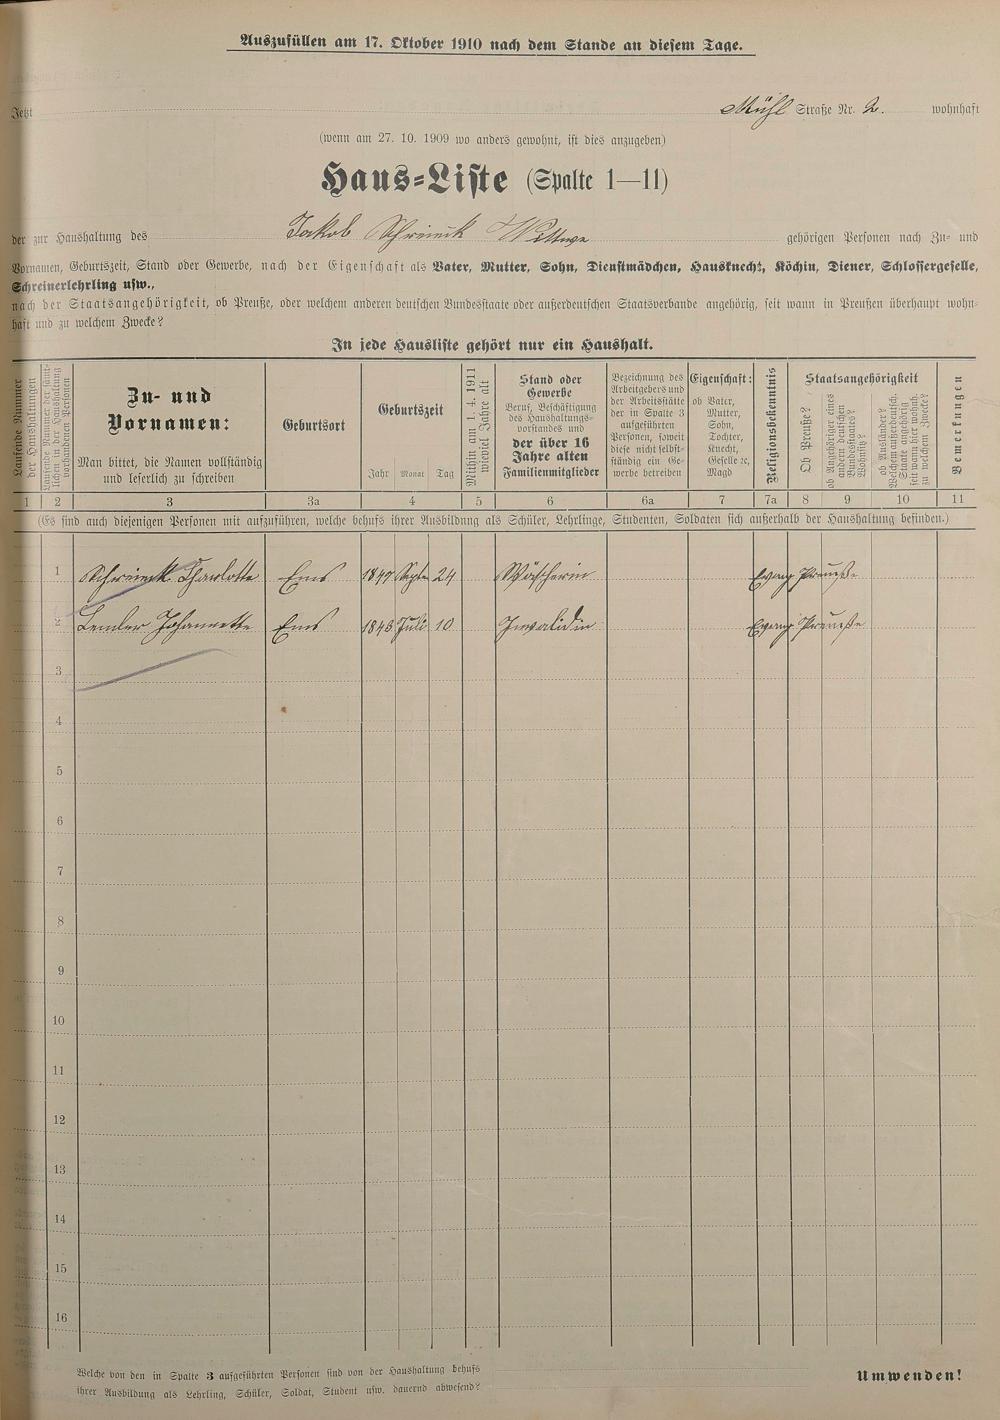 Auszufüllen am 17. Oktober 1910 nach dem Stande an diesem Tage.
Jetzt Mühl Straße Nr. 2. wohnhaft
(wenn am 27. 10. 1909 wo anders gewohnt, ist dies anzugeben)
Haus-Liste (Spalte 1—11)
der zur Haushaltung des Jakob Schrieuck Wittwe gehörigen Personen nach Zu- und
Vornamen, Geburtszeit, Stand oder Gewerbe, nach der Eigenschaft als Vater, Mutter, Sohn, Dienstmädchen, Hausknecht, Köchin, Diener, Schlossergeselle,
Schreinerlehrling usw.,
nach der Staatsangehörigkeit, ob Preuße, oder welchem anderen deutschen Bundesstaate oder außerdeutschen Staatsverbande angehörig, seit wann in Preußen überhaupt wohn-
haft und zu welchem Zwecke?
In jede Hausliste gehört nur ein Haushalt.
Laufende Nummer
der Haushaltungen
Laufende Nummer der sämt-
lichen in der Haushaltung
vorhandenen Personen
Zu- und
Vornamen:
Man bittet, die Namen vollständig
und leserlich zu schreiben
Geburtsort
Geburtszeit
Jahr Monat Tag
Mithin am 1. 4. 1911
wieviel Jahre alt
Stand oder
Gewerbe
Beruf, Beschäftigung
des Haushaltungs-
vorstandes und
der über 16
Jahre alten
Familienmitglieder
Bezeichnung des
Arbeitgebers und
der Arbeitsstätte
der in Spalte 3
aufgeführten
Personen, soweit
diese nicht selbst-
ständig ein Ge-
werbe betreiben
Eigenschaft:
ob Vater,
Mutter,
Sohn,
Tochter,
Knecht,
Geselle ec,
Magd
Religionsbekenntnis
Staatsangehörigkeit
Ob Preuße?
ob Angehöriger eines
andern deutschen
Bundesstaates?
Wohnsitz?
ob Ausländer?
Welchem außerdeutsch.
Staate angehörig
seit wann hier wohnh.
zu welchem Zwecke?
Bemerkungen
1 2 3 3a 4 5 6 6a 7 7a 8 9 10 11
(Es sind auch diejenigen Personen mit aufzuführen, welche behufs ihrer Ausbildung als Schüler, Lehrlinge, Studenten, Soldaten sich außerhalb der Haushaltung befinden.)
1 Schrieuck Charlotte Ems 1847 Septe 24 Wäscherin Evang Preuße
2 Lemler Johannette Ems 1843 Juli 10 Invalidin Evang Preuße
3
4
5
6
7
8
9
10
11
12
13
14
15
16
Welche von den in Spalte 3 aufgeführten Personen sind von der Haushaltung behufs
ihrer Ausbildung als Lehrling, Schüler, Soldat, Student usw. dauernd abwesend?
Umwenden!